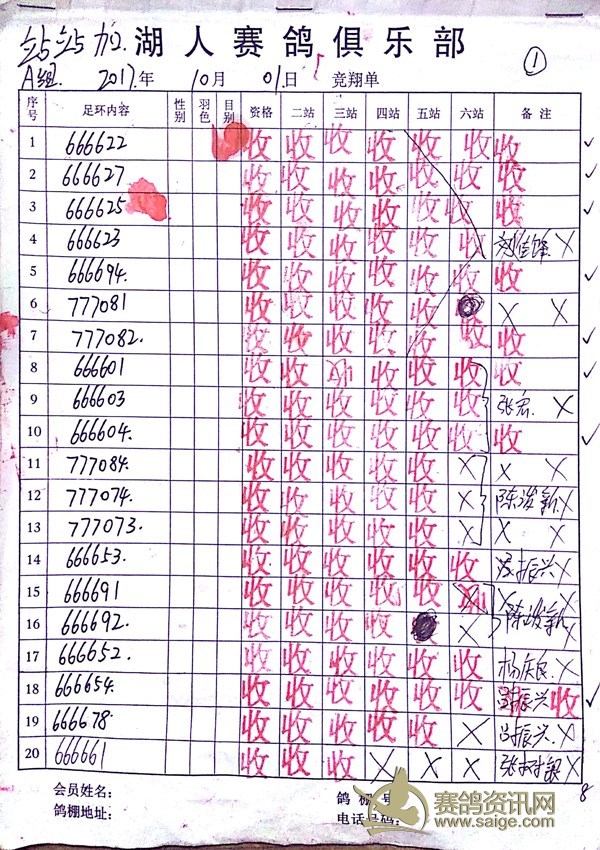 站站加. 湖人赛鸽俱乐部 ①
A组. 2017年 10月 01日 竞翔单
序号 足环内容 性别 羽色 目别 资格 二站 三站 四站 五站 六站 备注
1 666622 收 收 收 收 收 收 收 ✓
2 666627 收 收 收 收 收 收 收 ✓
3 666625 收 收 收 收 收 收 收 ✓
4 666623 收 收 收 收 收 收 X
5 666694. 收 收 收 收 收 收 收 ✓
6 777081 收 收 收 收 收 X X
7 777082. 收 收 收 收 收 收 收 ✓
8 666601 收 收 收 收 收 收 ✓
9 666603 收 收 收 收 收 收 张君. X
10 666604. 收 收 收 收 收 收 收 ✓
11 777084. 收 收 收 收 收 X X X
12 777074. 收 收 收 收 收 X 陈浚新 X
13 777073. 收 收 收 收 收 X X X
14 666653. 收 收 收 收 收 收 振兴 X
15 666691 收 收 收 收 收 X
16 666692. 收 收 收 收 X 陈浚新 X
17 666652. 收 收 收 收 收 收 杨庆良 X
18 666654. 收 收 收 收 收 收 吕振兴 收 ✓
19 666678. 收 收 收 收 收 X 吕振兴. X
20 666661 收 收 收 X X X 张树 X
会员姓名: 鸽棚号 8
鸽棚地址: 电话号码:
赛鸽资讯网
www.saige.com